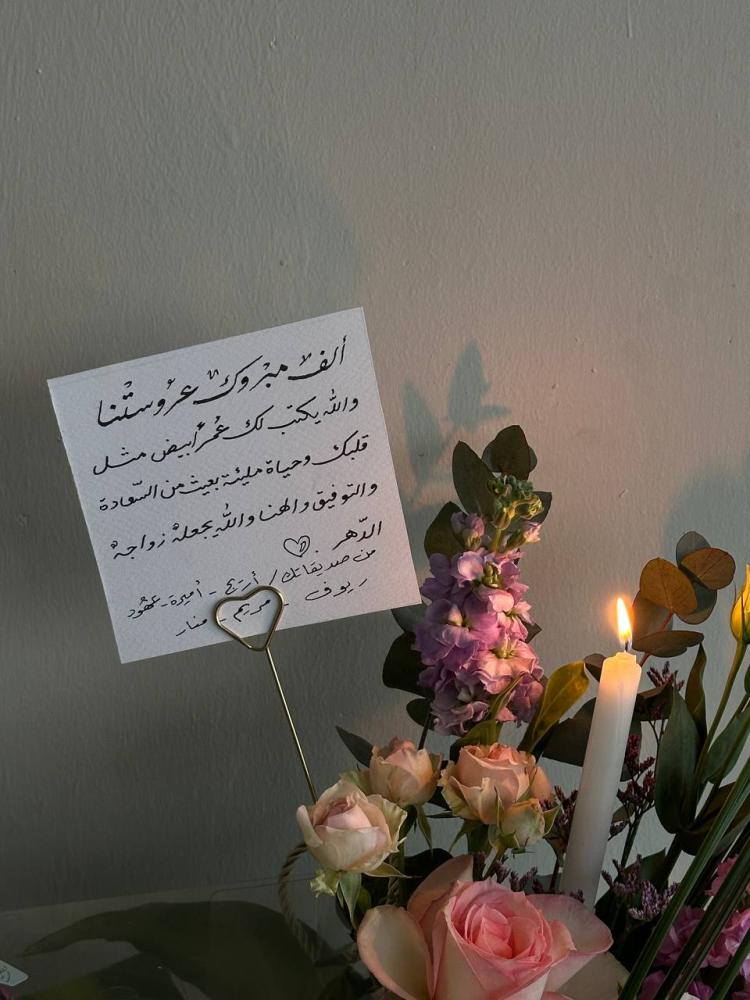 ألف مبروك عروستنا
والله يكتب لك عُمر أبيض مثل
قلبك وحياة مليئة بعيث من السّعادة
والتوفيق والهنا والله يجعله زواجة
الدّهر
من صديقاتك / أريج - أميرة - عهود
ريوف - مريم - منار